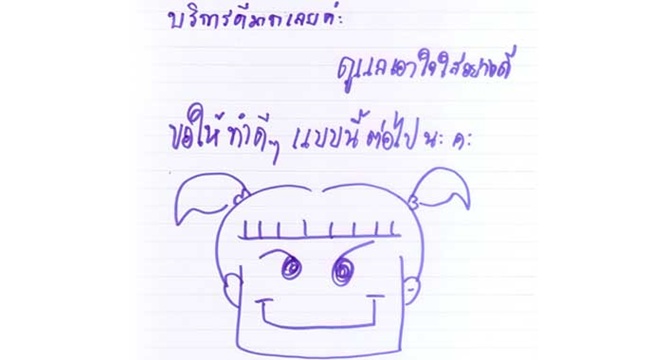 บริการดีมากเลยค่ะ
ดูแลเอาใจใส่อย่างดี
ขอให้ทำดีๆ แบบนี้ต่อไปนะคะ